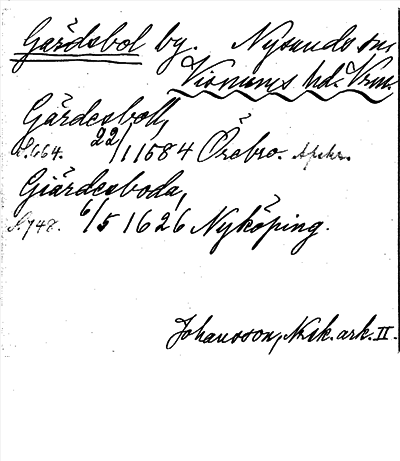 Gärdsbol by. Nysunds sn
Visnums hd. Vrml.
Gärdesboll,
S. 664. 22/1 1584 Örebro. Afskr.
Giärdesboda,
S. 748. 6/5 1626 Nyköping.
Johansson, Nzik. ark. II.